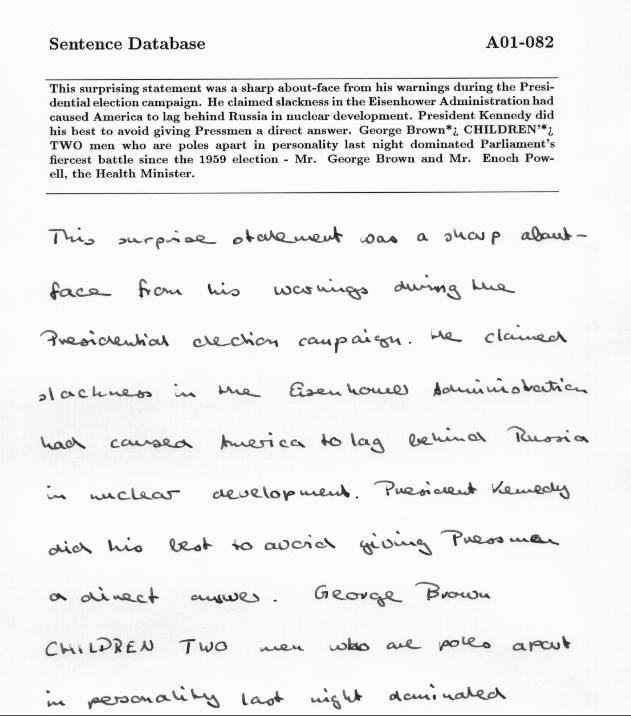 Sentence Database
A01-082
This surprising statement was a sharp about-face from his warnings during the Presi-
dential election campaign. He claimed slackness in the Eisenhower Administration had
caused America to lag behind Russia in nuclear development. President Kennedy did
his best to avoid giving Pressmen a direct answer. George Brown*¿ CHILDREN'*¿
TWO men who are poles apart in personality last night dominated Parliament's
fiercest battle since the 1959 election - Mr. George Brown and Mr. Enoch Pow-
ell, the Health Minister.
This surprise statement was a sharp about-
face from his warnings during the
Presidential election campaign. He claimed
slackness in the Eisenhower Administration
had caused America to lag behind Russia
in nuclear development. President Kennedy
did his best to avoid giving Pressmen
a direct answer. George Brown
CHILDREN TWO men who are poles apart
in personality last night dominated